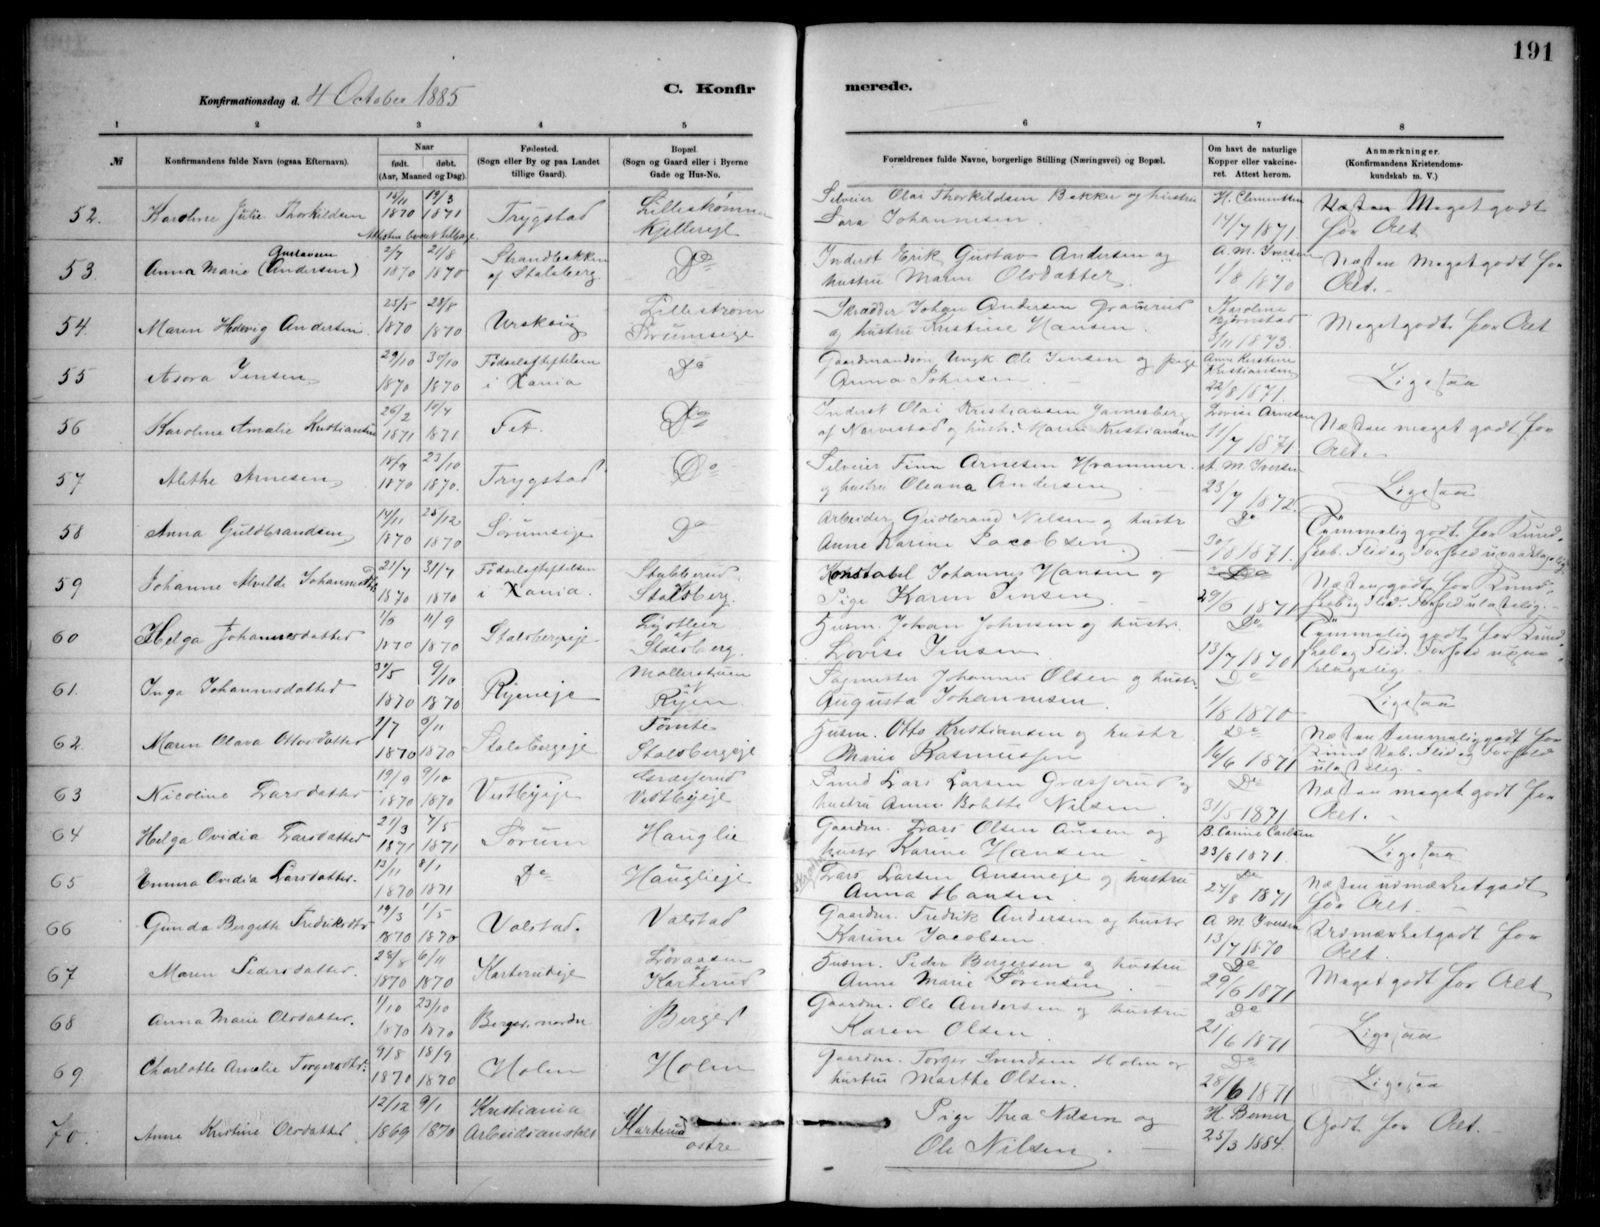 191
Konfirmationsdag d. 4 October 1885
C. Konfir
merede.
1 2 3 4 5 6 7 8
№
Konfirmandens fulde Navn (ogsaa Efternavn).
Naar
født. døbt.
(Aar, Maaned og Dag).
Fødested.
(Sogn eller By og paa Landet
tillige Gaard).
Bopæl.
(Sogn og Gaard eller i Byerne
Gade og Hus-No.
Forældrenes fulde Navne, borgerlige Stilling (Næringsvei) og Bopæl.
Om havt de naturlige
Kopper eller vakcine-
ret. Attest herom.
Anmærkninger.
(Konfirmandens Kristendoms-
kundskab m. V.)
52. Karoline Julie Thorkildsen 1870 19/3 1871 Trygstad Lillestrømmen Kjellereje Olai Thorkildsen Bakke og hustru Sara Johannesen H. Clementsen 14/7 1871 Næsten Meget godt for Alt
53 Anna Marie (Andersen) Gustavsen 2/7 1870 21/8 1870 Strandbakken af Stalsberg Do Inderst Erik Gustav Andersen og hustru Maren Olsdatter. A. M. Iversen 1/8 1870 Næsten Meget godt for Alt.
54. Maren Hedvig Andersen 25/5 1870 28/8 1870 Urskoug Lillestrøm Sørumseje Skrædder Johan Andersen og hustru Kristine Hansen. Karoline Bjørnstad 3/11 1873. Meget godt for Alt
55 Asora Jensen 29/10 1870 30/10 1870 Fødselsstiftelsen i Xania Do Gaardmandssøn Ungk Ole Jensen og pige Anna Johnsen Anne Kirstine Kristiansen 22/8 1871. Ligesaa
56 Karoline Amalie Kristiansen 26/2 1871 10/7 1871 Fet. Do Inderst Olai Kristiansen af og hustr. Maren Kristiansen Lovise Arnesen 11/7 1871 Næsten meget godt for Alt.
57 Alethe Arnesen 18/9 1870 23/10 1870. Trygstad Do Finn Arnesen og hustru Oleana Andersen A. M. Iversen 23/7 1872. Ligesaa
58 Anna Guldbrandsen 14/11 1870 25/12 1870 Sørumseje Do Arbeider Gudbrand Nilsen og hustr Anne Karine Jacobsen Do 30/8 1871. Tømmelig godt for Kund-skab. Flid og Forhold upaaklagelig
59 Johanne Alvilde Johannesdtr 21/7 1870 31/7 1870 Fødselsstiftelsen i Xania. Stubberud Stalsberg. Konstabel Johannes Hansen og Pige Karen Jensen Do 29/6 1871 Næsten godt for Kund-skab og Flid. Forhold ulastelig.
60 Helga Johannesdatter 1/6 1870 11/9 1870 Stalsbergeje af Stalsberg. Husm. Johan Johnsen og hustr. Lovise Jensen Do 13/7 1870 Tømmelig godt for Kund-skab og Flid. Forhold
61. Inga Johannesdatter 30/5 1870 9/10 1870 Ryeneje af Ryen. Sagmester Johannes Olsen og hustr. Augusta Johannesen Do 1/8 1870 Ligesaa
62. Maren Olava Ottosdatter 2/7 1870 6/11 1870 Stalsbergeje Tømte Stalsbergeje Husm. Otto Kristiansen og hustr Marie Rasmussen Do 16/6 1871 Næsten tømmelig godt for Kundskab. Flid og Forhold ulastelig.
63 Nicoline Larsdatter 19/9 1870 9/10 1870 Vestbyeje Græsjerud Vestbyeje Lars Larsen Græsjerud og hustru Anne Bolette Nilsen. Do 31/5 1871 Næsten meget godt for Alt.
64 Helga Ovidia Larsdatter 21/3 1871 7/5 1871 Sørum Hauglie Gaardm. Lars Olsen og hustr Karine Hansen B. Carine Carlsen 23/8 1871. Ligesaa
65 Emma Ovidia Larsdatter. 13/11 1870 8/1 1871 Do Hauglieje Lars Larsen og hustru Anna Hansen Do 24/8 1871 Næsten udmærket godt for Alt
66 Gunda Bergette Fredriksdtr 19/3 1870 1/5 1870 Valstad. Valstad Gaardm. Fredrik Andersen og hustr Karine Jacobsen A M Iversen 13/7 1870 Udmærket godt for Alt.
67 Maren Pedersdatter. 28/8 1870 6/11 1870 Karterudeje Løvaasen af Karterud Husm. Peder Bergersen og hustru Anne Marie Sørensen Do 29/6 1871 Meget godt for Alt
68 Anna Marie Olsdatter. 1/10 1870 23/10 1870 Berger, nordre Berger Gaardm. Ole Andersen og hustru Karen Olsen Do 21/6 1871 Ligesaa
69 Charlotte Amalie Torgersdtr. 9/8 1870 18/9 1870 Holen Holen Gaardm. Torger Svendsen Holen og hustru Marthe Olsen. Do 28/6 1871 Ligesaa
70. Anne Kristine Olsdatter 12/12 1869 9/1 1870 Kristiania Arbeidsanstalt Karterud østre Pige Thea Nilsen og Ole Nilsen. H. Berner 25/3 1884. Godt for Alt.